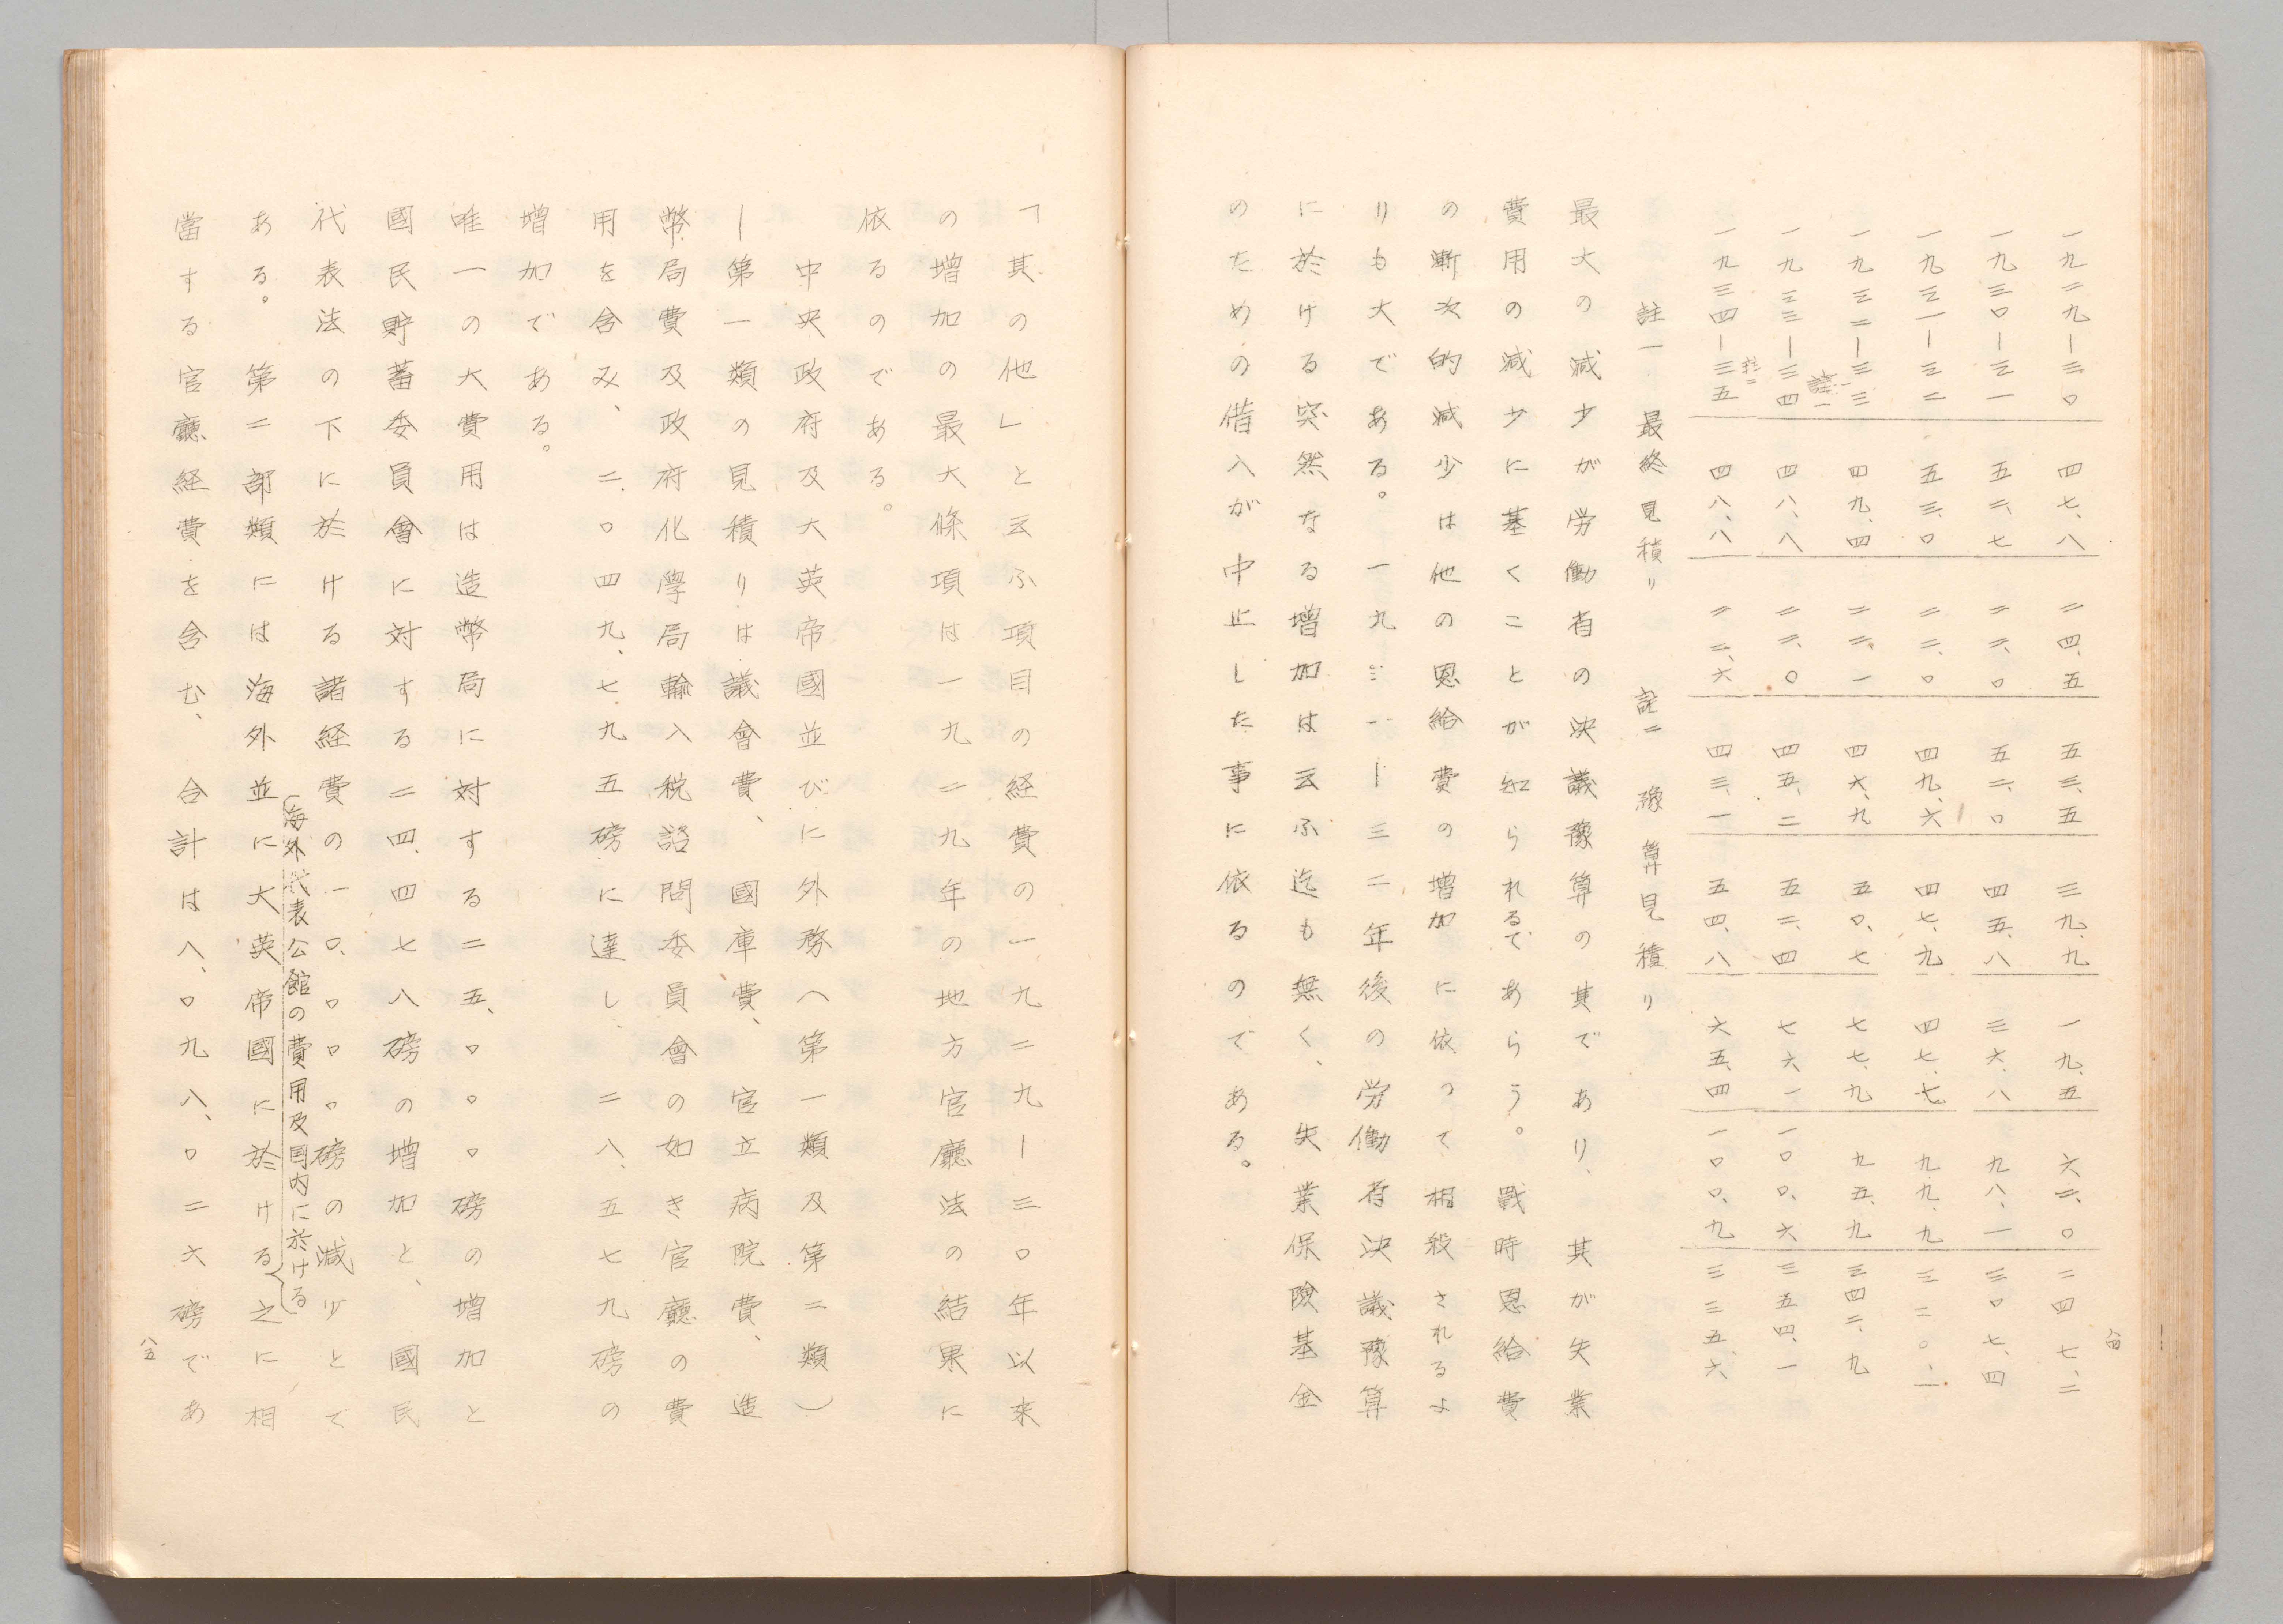 八四
一九二九ー三〇 四七、八 二四、五 五三、五 三九、九 一九、五 六二、〇 二四七、二
一九三〇ー三一 五二、七 二二、〇 五二、〇 四五、八 三六、八 九八、一 三〇七、四
一九三一ー三二 五三、〇 二二、〇 四九、六 四七、九 四七、七 九九、九 三二〇、一
一九三二ー三三 四九、四 二二、一 四六、九 五〇、七 七七、九 九五、九 三四二、九
註一
一九三三ー三四 四八、八 二二、〇 四五、二 五二、四 七六、一 一〇〇、六 三五四、一
註二
一九三四ー三五 四八、八 二二、六 四三、一 五四、八 六五、四 一〇〇、九 三三五、六
註一 最終見積リ 註二 豫算見積リ
最大の減少が労働者の決議豫算の其であり、其が失業
費用の減少に基くことが知られるであらう。戰時恩給費
の漸次的減少は他の恩給費の増加に依つて相殺されるよ
りも大である。一九三一ー三二年後の労働者決議豫算
に於ける突然なる増加は云ふ迄も無く、失業保険基金
のための借入が中止した事に依るのである。
「其の他」と云ふ項目の経費の一九二九ー三〇年以来
の増加の最大條項は一九二九年の地方官廳法の結果に
依るのである。
中央政府及大英帝國並びに外務(第一類及第二類)
ー第一類の見積りは議會費、國庫費、官立病院費、造
幣局費及政府化學局輸入税諮問委員會の如き官廳の費
用を含み、二、〇四九、七九五磅に達し、二八、五七九磅の
増加である。
唯一の大費用は造幣局に対する二五、〇〇〇磅の増加と
國民貯蓄委員會に対する二四、四七八磅の増加と、國民
代表法の下に於ける諸経費の一〇、〇〇〇磅の減少とで
(海外代表公館の費用及国内に於ける
ある。第二部類には海外並に大英帝國に於ける之に相
當する官廳経費を含む、合計は八、〇九八、〇二六磅であ
八五